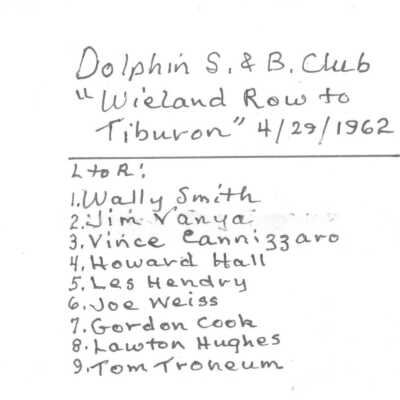 Dolphin S. & B. Club
"Wieland Row to
Tiburon" 4/29/1962
L to R:
1. Wally Smith
2. Jim Vanya
3. Vince Cannizzaro
4. Howard Hall
5. Les Hendry
6. Joe Weiss
7. Gordon Cook
8. Lawton Hughes
9. Tom Troneum